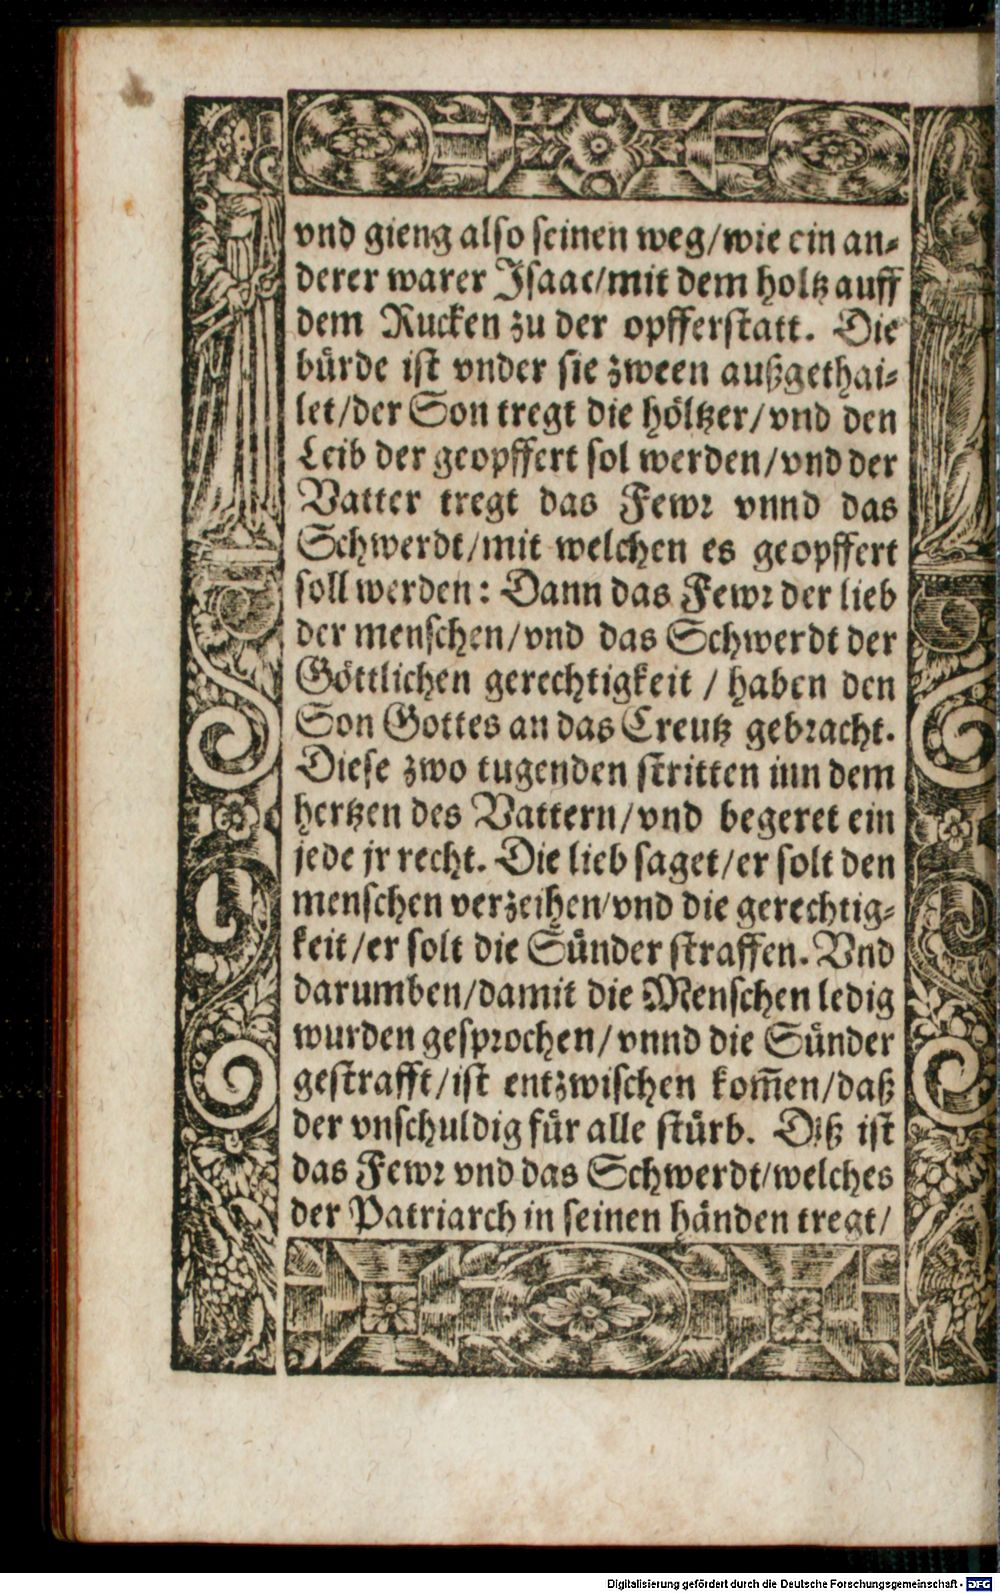 vnd gieng also seinen weg/wie ein an-
derer warer Isaac/mit dem holtz auff
dem Rucken zu der opfferstatt. Die
bürde ist vnder sie zween außgethai-
let/der Son tregt die höltzer/vnd den
Leib der geopffert sol werden/vnd der
Vatter tregt das Fewr vnnd das
Schwerdt/mit welchen es geopffert
soll werden: Dann das Fewr der lieb
der menschen/vnd das Schwerdt der
Göttlichen gerechtigkeit / haben den
Son Gottes an das Creutz gebracht.
Diese zwo tugenden stritten inn dem
hertzen des Vattern/vnd begeret ein
jede jr recht. Die lieb saget/er solt den
menschen verzeihen/vnd die gerechtig-
keit/er solt die Sünder straffen. Vnd
darumben/damit die Menschen ledig
wurden gesprochen/vnnd die Sünder
gestrafft/ist entzwischen kom̃en/daß
der vnschuldig für alle stürb. Diß ist
das Fewr vnd das Schwerdt/welches
der Patriarch in seinen händen tregt/
Digitalisierung gefördert durch die Deutsche Forschungsgemeinschaft - DFG